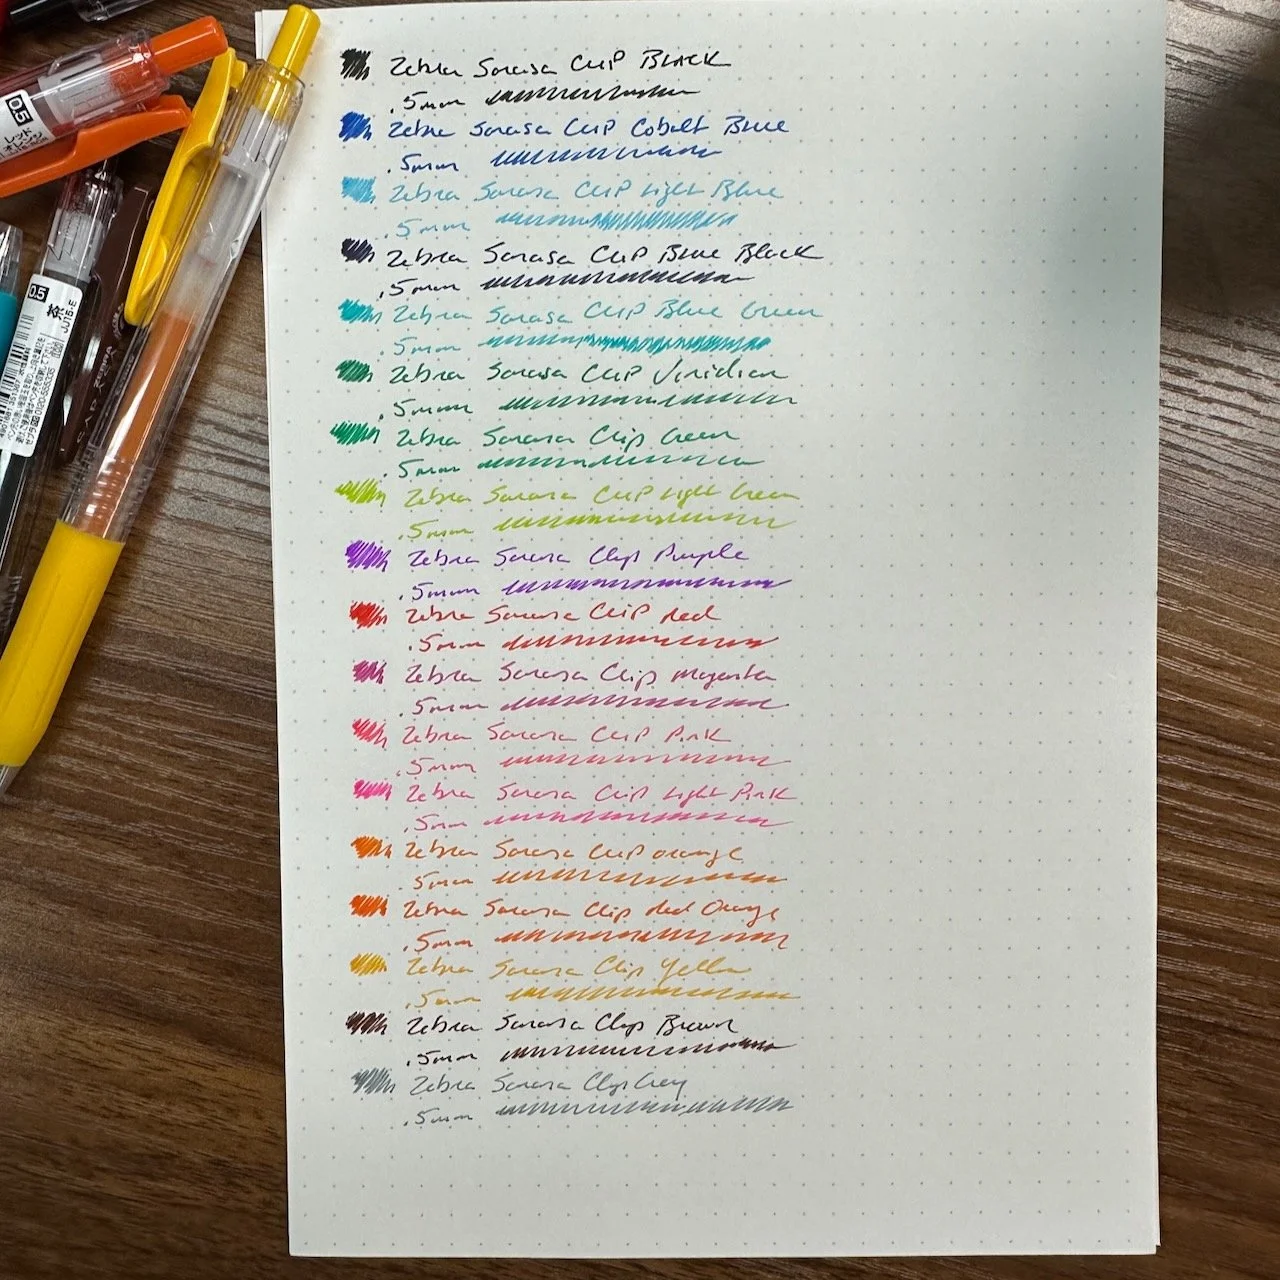 Zebra Sarasa Clip Black
.5mm
Zebra Sarasa Clip Cobalt Blue
.5mm
Zebra Sarasa Clip Light Blue
.5mm
Zebra Sarasa Clip Blue Black
.5mm
Zebra Sarasa Clip Blue Green
.5mm
Zebra Sarasa Clip Viridian
.5mm
Zebra Sarasa Clip Green
.5mm
Zebra Sarasa Clip Light Green
.5mm
Zebra Sarasa Clip Purple
.5mm
Zebra Sarasa Clip Red
.5mm
Zebra Sarasa Clip Magenta
.5mm
Zebra Sarasa Clip Pink
.5mm
Zebra Sarasa Clip Light Pink
.5mm
Zebra Sarasa Clip Orange
.5mm
Zebra Sarasa Clip Red Orange
.5mm
Zebra Sarasa Clip Yellow
.5mm
Zebra Sarasa Clip Brown
.5mm
Zebra Sarasa Clip Grey
.5mm
0.5
レッド
オレンジ
0.5
JJ15-E